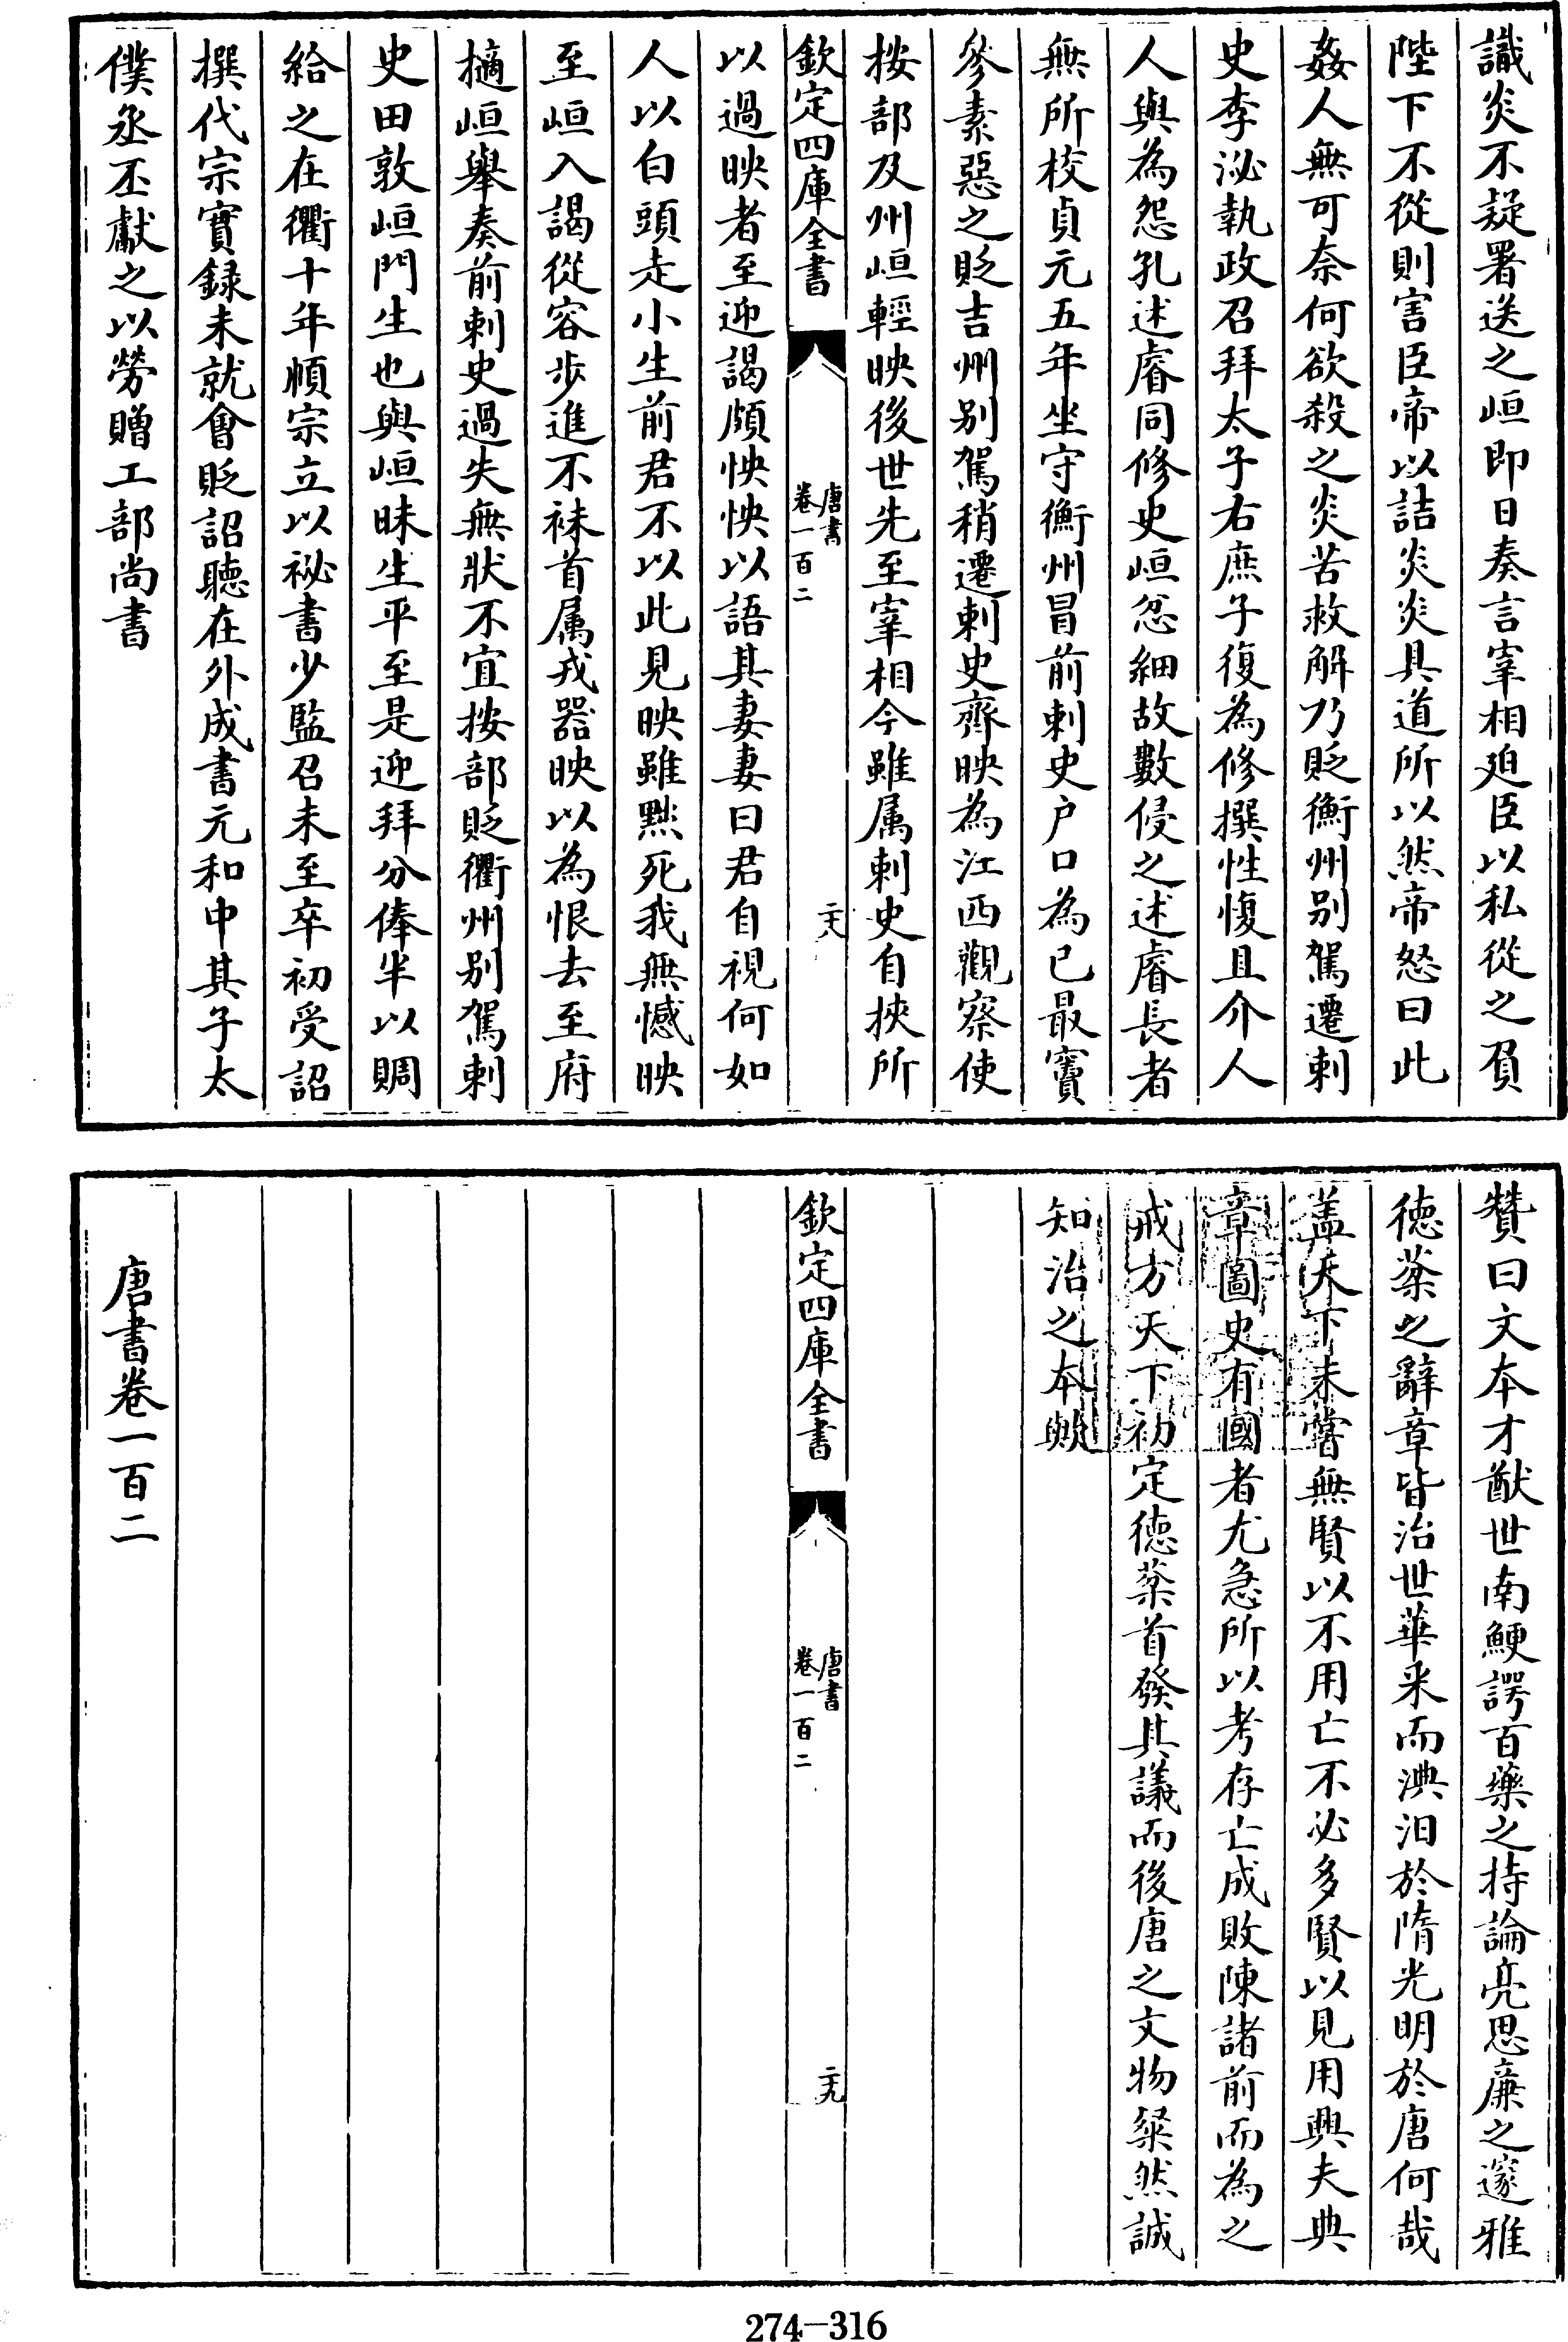 識炎不疑署送之峘即日奏言宰相廹臣以私從之負
陛下不從則害臣帝以詰炎炎具道所以然帝怒曰此
姦人無可奈何欲殺之炎苦救解乃貶衡州别駕遷刺
史李泌執政召拜太子右庶子復為修撰性愎且介人
人與為怨孔述睿同修史峘忿細故數侵之述睿長者
無所校貞元五年坐守衡州冒前刺史户口為已最竇
參素惡之貶吉州别駕稍遷刺史齊映為江西觀察使
按部及州峘輕映後世先至宰相今雖属刺史自挾所
欽定四庫全書
唐書
卷一百二
二十八
以過映者至迎謁頗怏怏以語其妻妻曰君自視何如
人以白頭走小生前君不以此見映雖黜死我無憾映
至峘入謁從容步進不袜首属戎器映以為恨去至府
擿峘舉奏前刺史過失無狀不宜按部貶衢州别駕刺
史田敦峘門生也與峘昧生平至是迎拜分俸半以賙
給之在衢十年順宗立以祕書少監召未至卒初受詔
撰代宗實録未就會貶詔聽在外成書元和中其子太
僕丞丕獻之以勞贈工部尚書
贊曰文本才猷世南鯁諤百藥之持論亮思廉之邃雅
徳棻之辭章皆治世華采而淟汨於隋光明於唐何哉
盖天下未嘗無賢以不用亡不必多賢以見用興夫典
章圖史有國者尤急所以考存亡成敗陳諸前而為之
戒方天下初定徳棻首發其議而後唐之文物粲然誠
知治之本歟
欽定四庫全書
唐書
卷一百二
二十九
唐書卷一百二
274-316